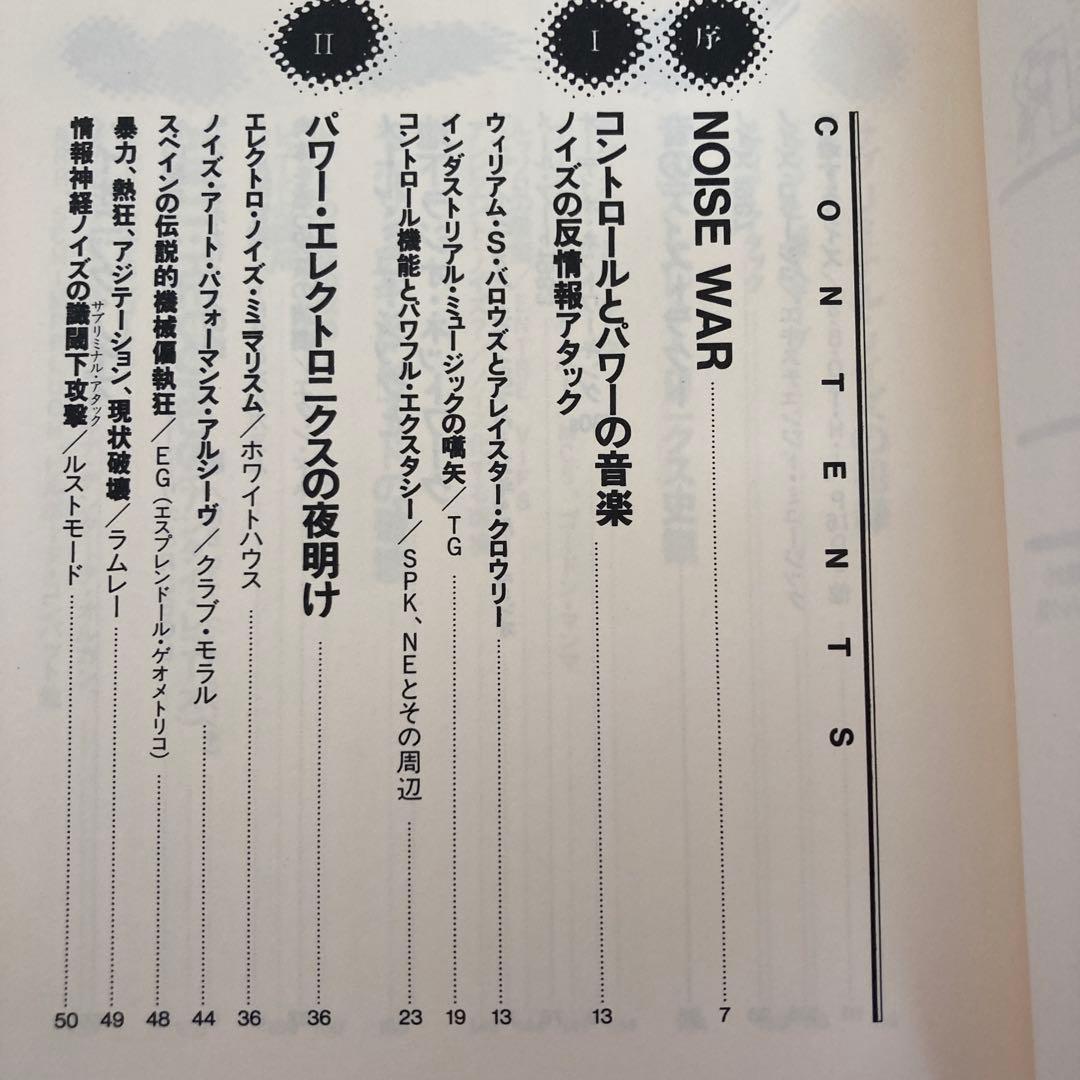 CONTENTS
序
NOISE WAR 7
I
コントロールとパワーの音楽 13
ノイズの反情報アタック
ウィリアム・S・バロウズとアレイスター・クロウリー 13
インダストリアル・ミュージックの嚆矢／TG 19
コントロール機能とパワフル・エクスタシー／SPK、NEとその周辺 23
II
パワー・エレクトロニクスの夜明け 36
エレクトロ・ノイズ・ミニマリスム／ホワイトハウス 36
ノイズ・アート・パフォーマンス・アルシーヴ／クラブ・モラル 44
スペインの伝説的機械偏執狂／EG（エスプレンドール・ゲオメトリコ） 48
暴力、熱狂、アジテーション、現状破壊／ラムレー 49
サブリミナル・アタック
情報神経ノイズの識閾下攻撃／ルストモード 50